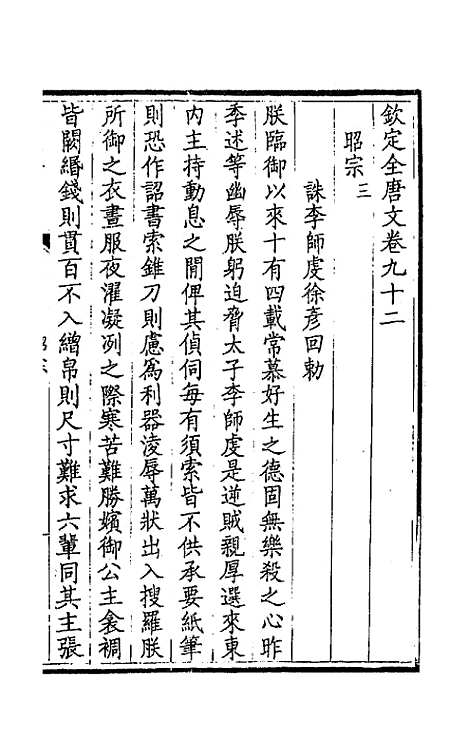 欽定全唐文卷九十二
昭宗三
誅李師虔徐彥回勅
朕臨御以來十有四載常慕好生之德固無樂殺之心昨
季述等幽辱朕躬迫脅太子李師虔是逆賊親厚選來東
內主持動息之間俾其偵伺每有須索皆不供承要紙筆
則恐作詔書索錐刀則慮為利器淩辱萬狀出入搜羅朕
所御之衣晝服夜濯凝冽之際寒苦難勝嬪御公主衾裯
皆闕緡錢則貫百不入繒帛則尺寸難求六輩同其主張